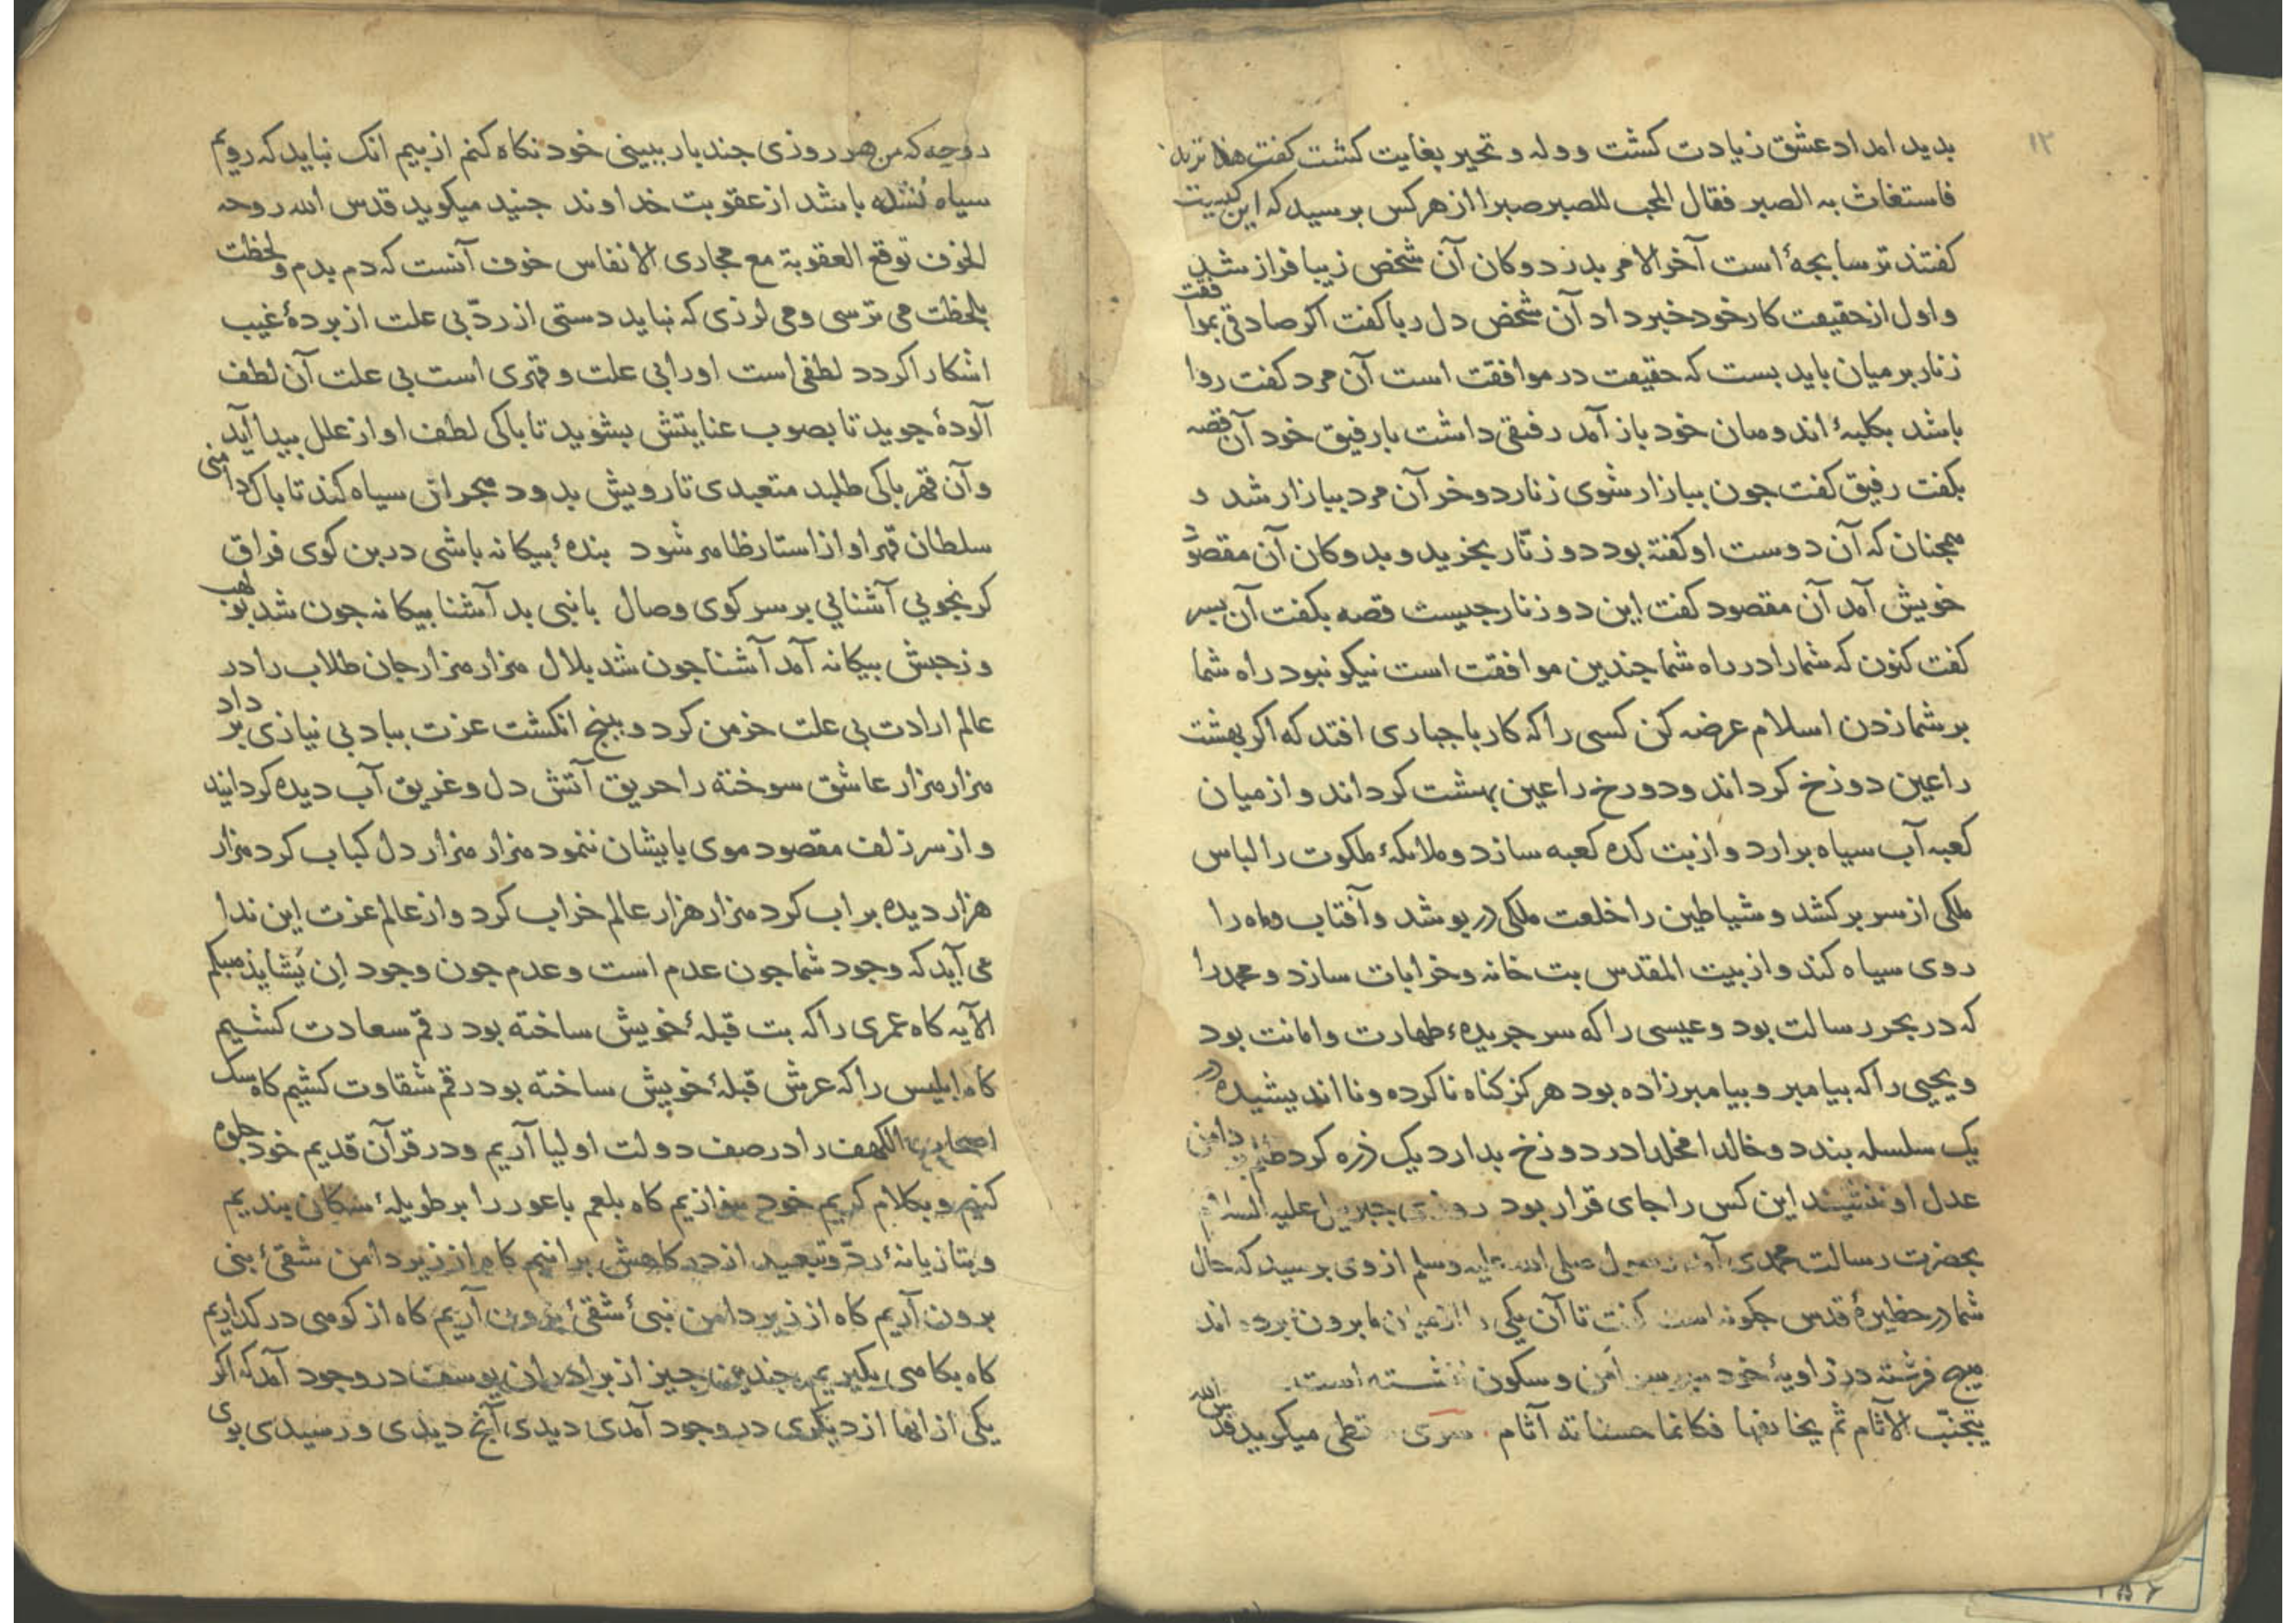 ۱۲
بدید امداد عشق زیادت کشت و وله و تحیر بغایت کشت کفت
فاستغاث به الصبر فقال المحب للصبر صبرا از هرکس برسید که این کیست
کفتند ترسا بجهٔ است آخر الامر بدر دوکان آن شخص زیبا فراز شد
و اول از حقیقت کار خود خبر داد آن شخص دل ربا کفت اکر صادقی بموافقت
زنار بر میان باید بست که حقیقت در موافقت است آن مرد کفت روا
باشد بکلبهٔ اندوهان خود باز آمد رفیقی داشت با رفیق خود آن قصه
بکفت رفیق کفت جون ببازار شوی زنار دو خر آن مرد ببازار شد و
همجنان که آن دوست او کفته بود دو زنّار بخرید و بدوکان آن مقصود
خویش آمد آن مقصود کفت این دو زنار جیست قصه بکفت آن بسر
کفت کنون که شما را در راه شما جندین موافقت است نیکو نبود راه شما
بر شما زدن اسلام عرضه کن کسی را که کار با جباری افتد که اکر بهشت
را عین دوزخ کرداند و دورخ را عین بهشت کرداند و از میان
کعبه آب سیاه برارد و از بت کده کعبه سازد و ملائکهٔ ملکوت را لباس
ملکی از سر برکشد و شیاطین را خلعت ملکی در بوشد و آفتاب و ماه را
روی سیاه کند و از بیت المقدس بت خانه و خرابات سازد و محمد را
که در بحر رسالت بود و عیسی را که سر جریدهٔ طهارت و امانت بود
و یحیی را که بیامبر و بیامبرزاده بود هرکز کناه ناکرده و نااندیشیده در
یک سلسله بندد و خالدا مخلدا در دوزخ بدارد یک ذره کرد دامن
عدل او ننشیند این کس را جای قرار بود روزی جبریل علیه السلام
بحضرت رسالت محمدی آمد رسول صلی الله علیه وسلم از وی برسید که حال
شما در حظیرهٔ قدس جکونه است کفت تا آن یکی را از میان ما برون برده اند
هیج فرشته در زاویهٔ خود بر سر امن و سکون ننشسته است
یتجنّب الآثام ثم یخافها فکانما حسناته آثام سری سقطی میکوید قدس الله
روحه که من هر روزی جند بار ببینی خود نکاه کنم از بیم انک نباید که رویم
سیاه شده باشد از عقوبت خداوند جنید میکوید قدس الله روحه
الخوف توقع العقوبة مع مجاری الانفاس خوف آنست که دم بدم و لحظت
بلحظت می ترسی و می لرزی که نباید دستی از ردّ بی علت از بردهٔ غیب
اشکارا کردد لطفی است او را بی علت و قهری است بی علت آن لطف
آلودهٔ جوید تا بصوب عنایتش بشوید تا باکی لطف او از علل بیدا آید
و آن قهر باکی طلبد متعبدی تا رویش بدود هجران سیاه کند تا باک دامنی
سلطان قهر او از استار ظاهر شود بندهٔ بیکانه باشی در بن کوی فراق
کر نجویی آشنایی بر سر کوی وصال با نبی بد آشنا بیکانه جون شد بولهب
وز حبش بیکانه آمد آشنا جون شد بلال هزار هزار جان طلاب را در
عالم ارادت بی علت خرمن کرد و ببنج انکشت عزت بباد بی نیازی برداد
هزار هزار عاشق سوخته را حریق آتش دل و غریق آب دیده کردانید
و از سر زلف مقصود موی بایشان ننمود هزار هزار دل کباب کرد هزار
هزار دیده بر اب کرد هزار هزار عالم خراب کرد و از عالم عزت این ندا
می آید که وجود شما جون عدم است و عدم جون وجود اِن یَشا یذهبکم
الآیه کاه عمری را که بت قبلهٔ خویش ساخته بود رقم سعادت کشیم
کاه ابلیس را که عرش قبلهٔ خویش ساخته بود رقم شقاوت کشیم کاه سک
اصحاب الکهف را در صف دولت اولیا آریم و در قرآن قدیم خود جلوه
کنیم و بکلام کریم خود بنوازیم کاه بلعم باعور را بر طویلهٔ سکان بندیم
و بتازیانهٔ ردّ و تبعید از درکاهش برانیم کاه از زیر دامن شقیٔ نبی
برون آریم کاه از زیر دامن نبیٔ شقیٔ برون آریم کاه از کوهی در کذاریم
کاه بکاهی بکیریم جندین جیز از برادران یوسف در وجود آمد که اکر
یکی از انها از دیکری در وجود آمدی دیدی آنج دیدی و رسیدی بوی